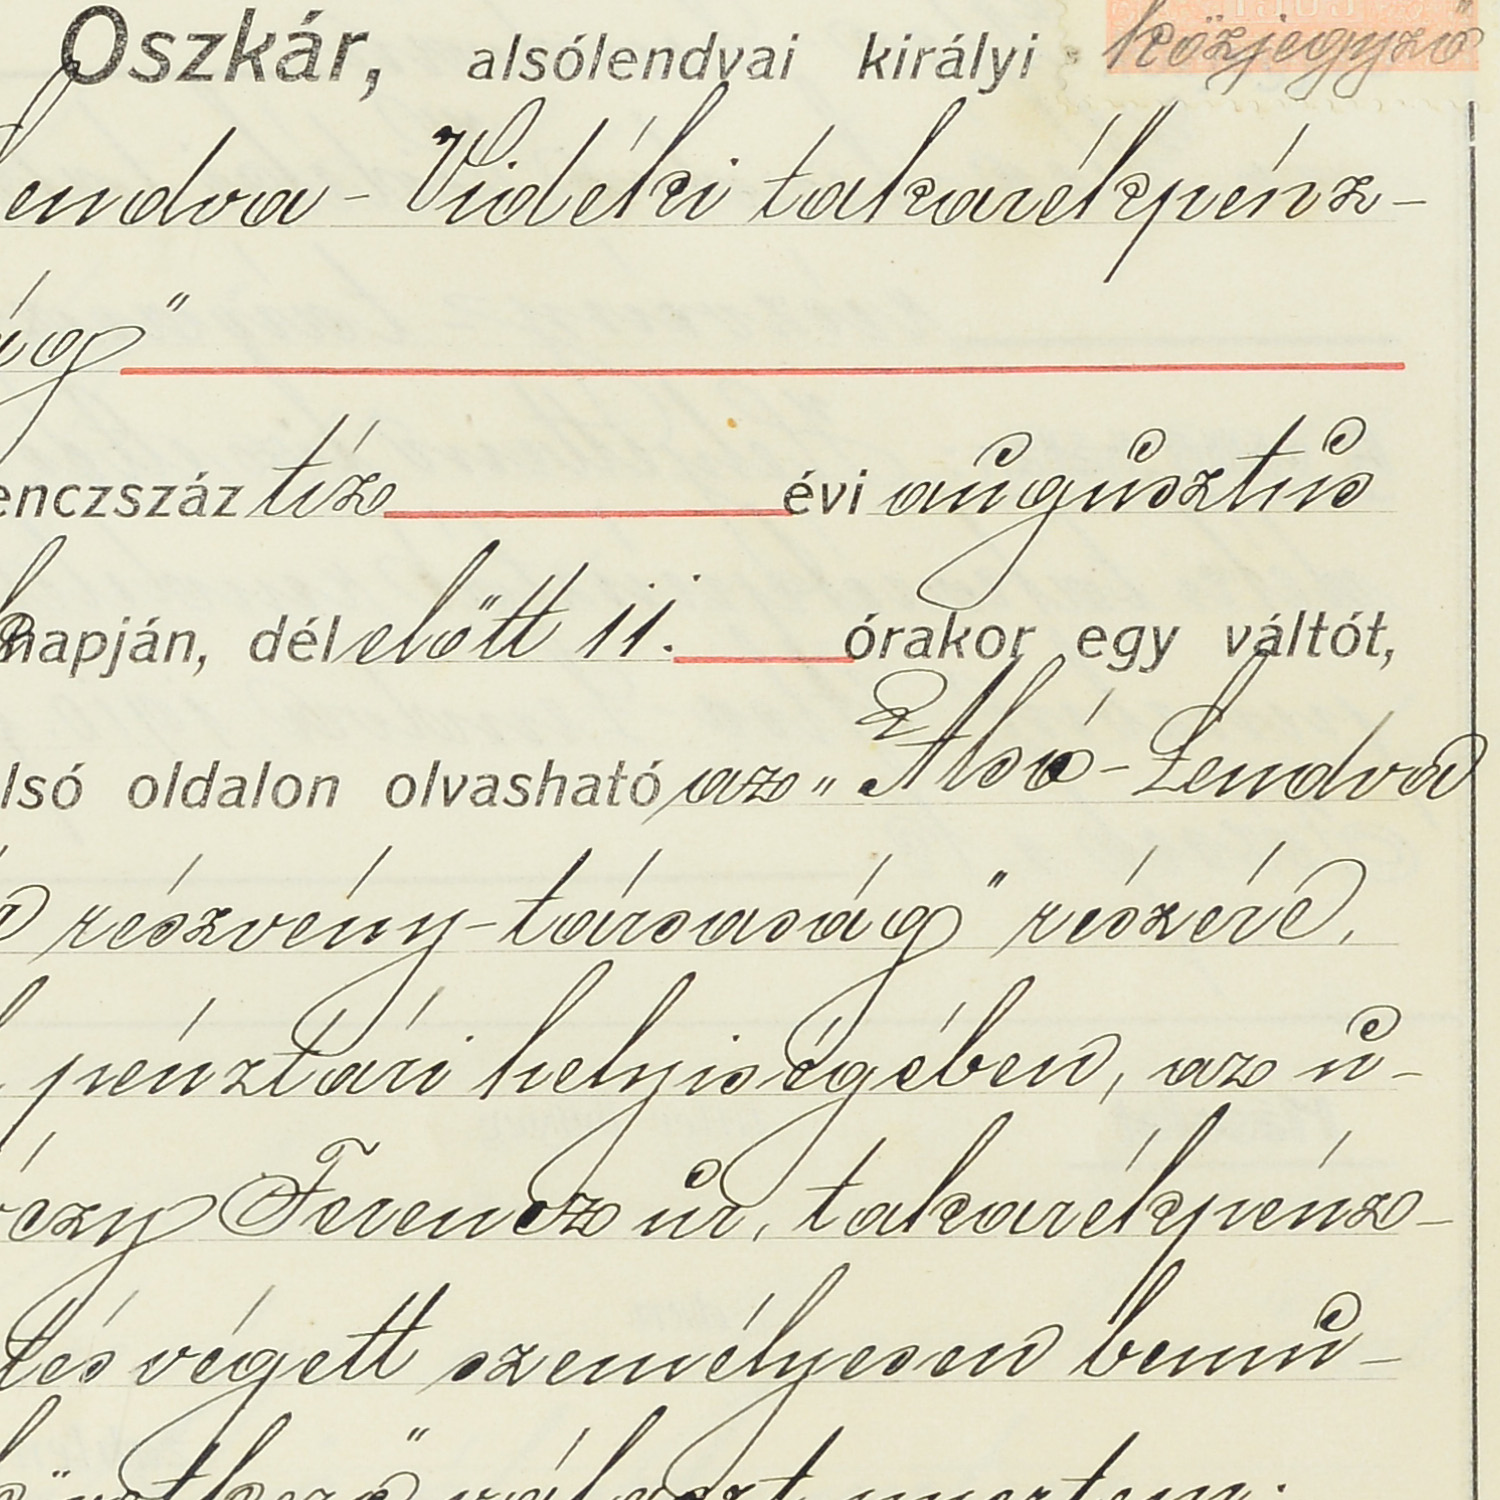 Oszkár, alsólendvai királyi közjegyző
Lendva - Vidéki takarékpénz-
ág"
enczszáz tíz évi augusztus
napján, délelőtt 11. órakor egy váltót,
lsó oldalon olvasható az „Alsó-Lendva
részvény-társaság" részére,
pénztári helyiségében, az u-
éczy Ferencz úr, takarékpénz-
tés végett személyesen bemu-
következő választ nyertem: